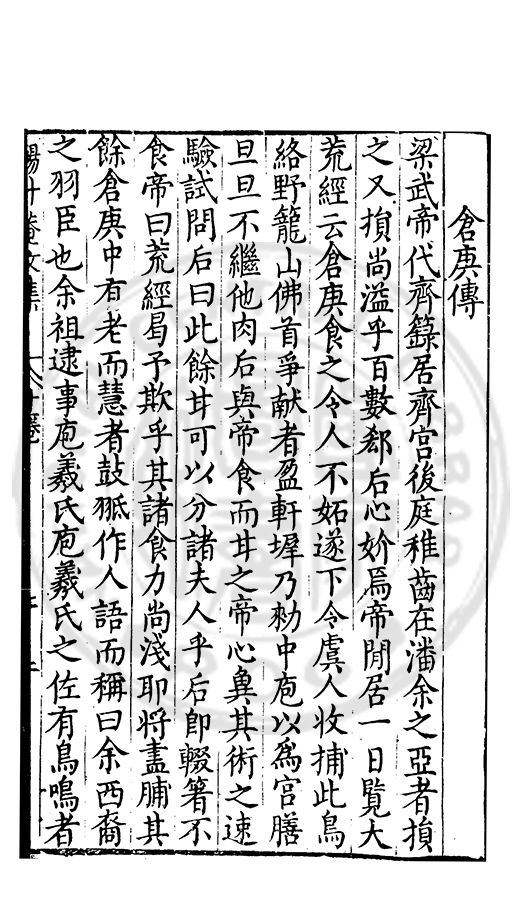 倉庚傳
梁武帝代齊籙居齊宮後庭稚齒在潘余之亞者損
之又損尚溢乎百數郄后心妎焉帝閒居一日覽大
荒經云倉庚食之令人不妬遂下令虞人收捕此鳥
絡野籠山佛首爭献者盈軒墀乃勑中庖以為宮膳
旦旦不繼他肉后與帝食而甘之帝心兾其術之速
驗試問后曰此餘甘可以分諸夫人乎后即輟箸不
食帝曰荒經曷予欺乎其諸食力尚淺耶将盡脯其
餘倉庚中有老而慧者鼓𦐇作人語而稱曰余西裔
之羽臣也余祖逮事庖羲氏庖羲氏之佐有鳥鳴者